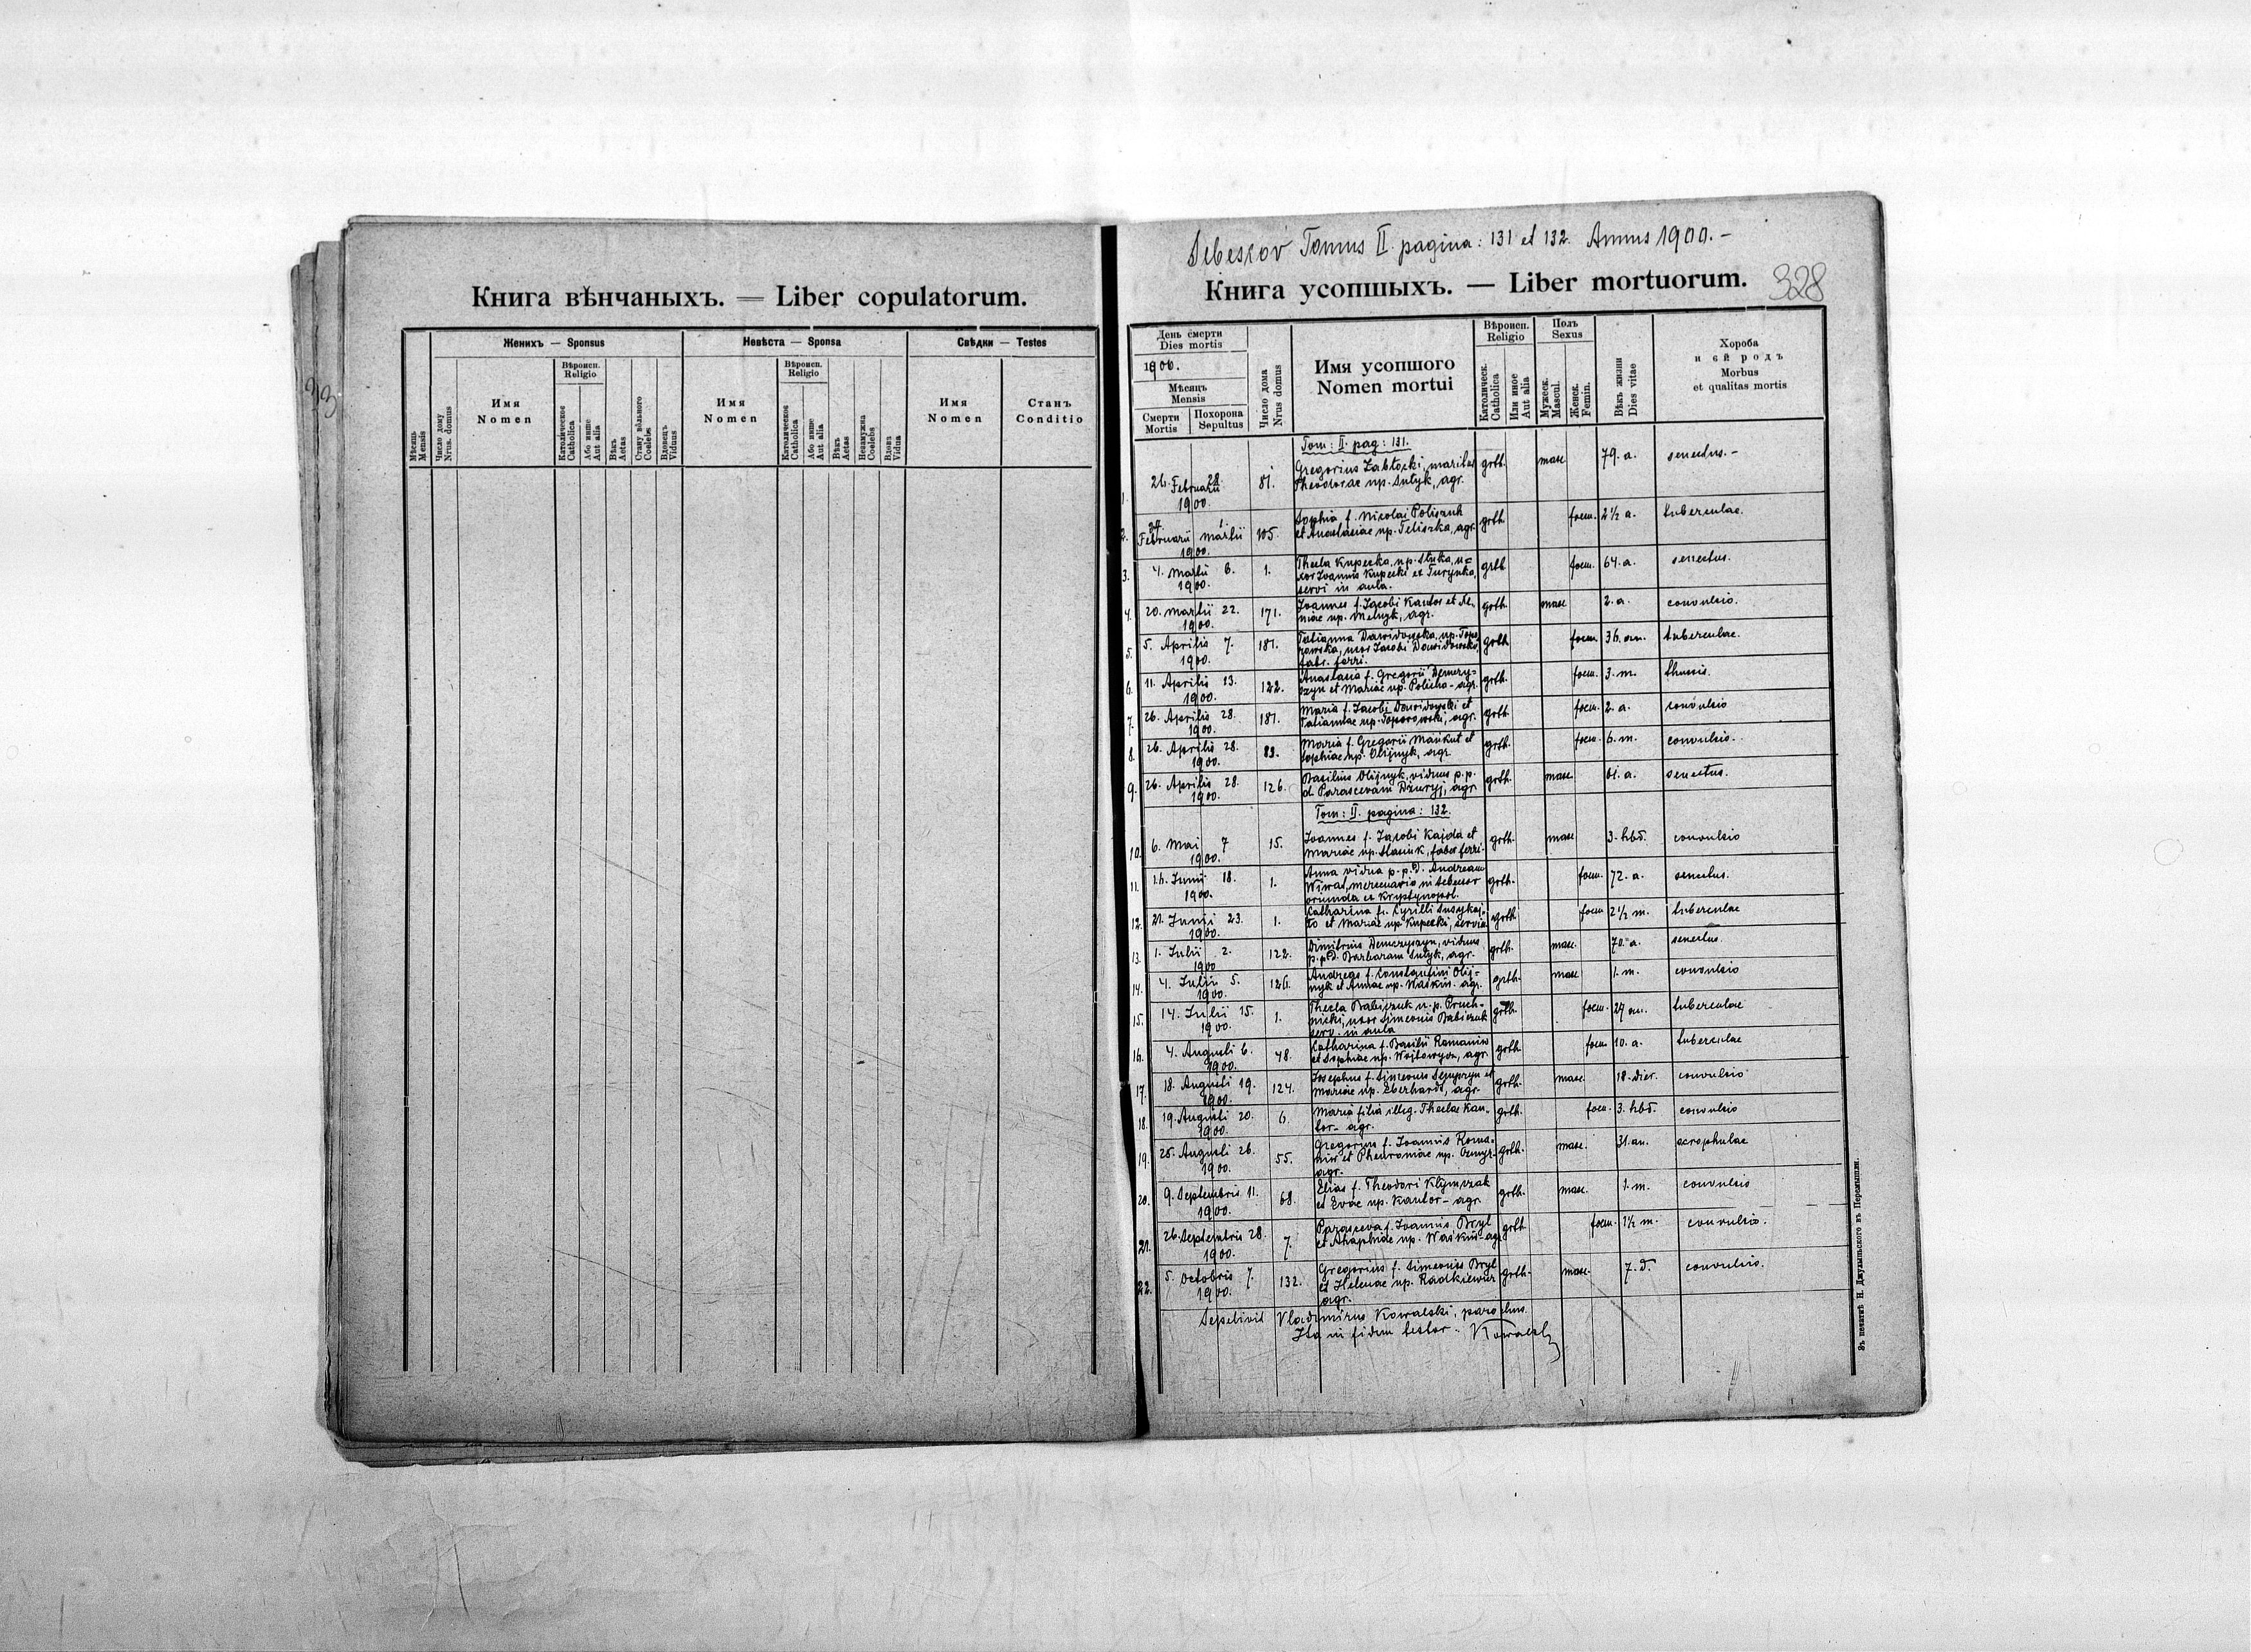 33
Книга вѣнчаныхъ. — Liber copulatorum.
Женихъ — Sponsus
Невѣста — Sponsa
Свѣдки — Testes
Мѣсяць Mensis
Число дому Nrus. domus
Имя
Nomen
Вѣроисп.
Religio
Католическое Catholica
Або инше Aut alia
Вѣкъ Aetas
Стану вôльного Coelebs
Вдовецъ Viduus
Имя
Nomen
Вѣроисп.
Religio
Католическое Catholica
Або инше Aut alia
Вѣкъ Aetas
Незамужна Coelebs
Вдова Vidua
Имя
Nomen
Станъ
Conditio
Tomus II. pagina: 131 et 132. Annus 1900.-
Книга усопшыхъ. — Liber mortuorum.
328
День смерти
Dies mortis
1900.
Мѣсяцъ
Mensis
Смерти
Mortis
Похорона
Sepultus
Число дома
Nrus domus
Имя усопшого
Nomen mortui
Вѣроисп.
Religio
Католическ.
Catholica
Или иное
Aut alia
Полъ
Sexus
Мужеск.
Mascul.
Женск.
Femin.
Вѣкъ жизни
Dies vitae
Хороба
и єй родъ
Morbus
et qualitas mortis
Tom: II. pag: 131.
1. 26. Februarii 28. 1900. 81. Gregorius Zabłocki, maritus grcth. masc 79. a. senectus.-
Theodorae np. Sutyk, agr.
2. 27. Februarii 1. Martii 1900. 105. Sophia f. Nicolai Poliszuk grcth. foem. 2½ a. tuberculae.
et Anastasiae np. Teliszka, agr.
3. 4. Martii 6. 1900. 1. Thecla Kupecka, np. u= grcth foem. 64. a. senectus.
xor Joannis Kupecki ex Turynka,
servi in aula.
4. 20. Martii 22. 1900. 171. Joannes f. Jacobi Kantor et grcth. masc 2. a. convulsio.
niae np. Melnyk, agr.
5. 5. Aprilis 7. 1900. 181. Tatianna Dawidowska, np. Topo grcth foem 36. an. tuberculae.
rowska, uxor Jacobi Dawidowski,
fabr. ferri.
6. 11. Aprilis 13. 1900. 122. Anastasia f. Gregorii Demczy- grcth. foem. 3. m. thussis.
szyn et Mariae np. - agr.
7. 26. Aprilis 28. 1900. 181. Maria f. Jacobi Dawidowski et grcth. foem. 2. a. convulsio
Tatiannae np. Toporowski, agr.
8. 26. Aprilis 28. 1900. 83. Maria f. Gregorii et grcth. foem. 6. m. convulsio.
Sophiae np. Olijnyk, agr.
9. 26. Aprilis 28. 1900. 126. Basilius Olijnyk, viduus p. p. grcth. masc. 61. a. senectus.
d. Parascevam Dziuryj, agr.
Tom: II. pagina: 132.
10. 6. Mai 7 1900. 15. Joannes f. Jacobi Kajda et grcth. masc 3. hbd. convulsio
Mariae np. faber ferri.
11. 16. Junii 18. 1900. 1. Anna vidua p. p. d. Andream grcth. foem. 72. a. senectus.
mercenario in
oriunda ex Krystynopol.
12. 21. Junii 23. 1900. 1. Catharina f. Cyrilli grcth foem 2½ m. tuberculae
et Mariae np Kupecki, servia
13. 1. Julii 2. 1900 122. Dimitrius Demczyszyn, viduus grcth. masc. 70. a. senectus.
p. p. d. Barbaram Sutyk, agr.
14. 4. Julii 5. 1900. 126. Andreas f. Constantini Olij- grcth. masc 1. m. convulsio
nyk et Annae np. Waskiw. agr.
15. 14. Julii 15. 1900. 1. Thecla Babiczuk n. p. Pruch- grcth. foem. 27 an. tuberculae
nicki, uxor Simeonis Babiczuk
serv. in aula
16. 4. Augusti 6. 1900. 48. Catharina f. Basilii Romaniw grcth. foem 10. a. tuberculae
et Sophiae np. Wojtowycz, agr.
17. 18. Augusti 19. 1900. 124. Josephus f. Simeonis et grcth. masc. 18. dier. convulsio
Mariae np. Eberhardt, agr.
18. 19. Augusti 20. 1900. 6. Maria filia illeg. Theclae Kan- grcth. foem. 3. hbd. convulsio
tor - agr.
19. 25. Augusti 26. 1900. 55. Gregorius f. Joannis Roma- grcth. masc. 31. an. scrophulae
niw et Pheuroniae np.
agr.
20. 9. Septembris 11. 1900. 68. Elias f. Theodori Klymczak grcth. masc. 1. m. convulsio
et Evae np. Kantor - agr.
21. 26. Septembris 28. 1900. 7. Parasceva f. Joannis Bryl grcth foem. 1½ m. convulsio.
et Ahaphiae np. Waskiw - agr
22. 5. Octobris 7. 1900. 132. Gregorius f. Simeonis Bryl grcth. masc. 7. d. convulsio.
et Helenae np. Radkiewicz
agr.
Sepelivit Vladimirus Kowalski, parochus.
Ita in fidem testor. Kowalski
Зъ печатнѣ Н. Джулыньского въ Перемышли.